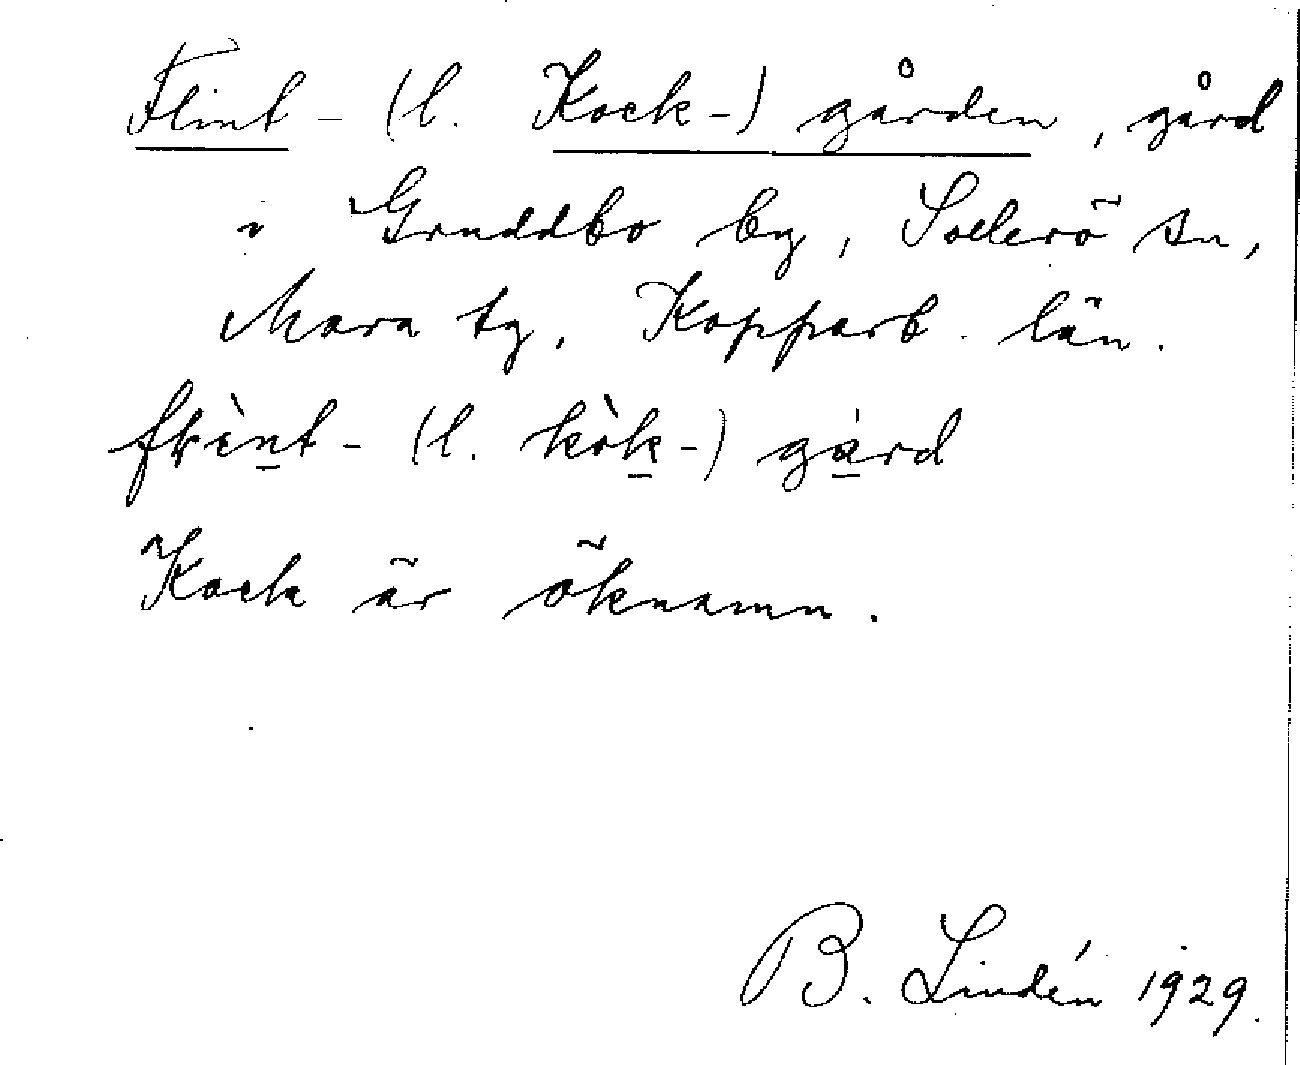 Flint- (l. Kock-) gården, gård
i Gruddbo by, Sollerö sn,
Mora tg, Kopparb. län.
(l. kòk-) gård
Kock är öknamn.
B. Lindén 1929.